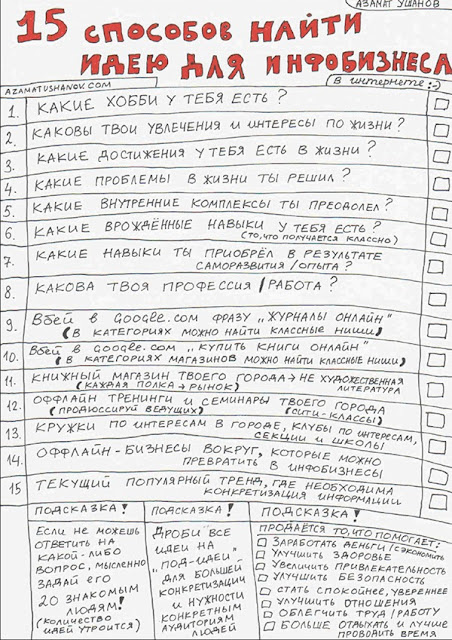 АЗАМАТ УШАНОВ
15 СПОСОБОВ НАЙТИ
ИДЕЮ ДЛЯ ИНФОБИЗНЕСА
AZAMATUSHANOV.COM
В ИНТЕРНЕТЕ :-)
1. КАКИЕ ХОББИ У ТЕБЯ ЕСТЬ?
2. КАКОВЫ ТВОИ УВЛЕЧЕНИЯ И ИНТЕРЕСЫ ПО ЖИЗНИ?
3. КАКИЕ ДОСТИЖЕНИЯ У ТЕБЯ ЕСТЬ В ЖИЗНИ?
4. КАКИЕ ПРОБЛЕМЫ В ЖИЗНИ ТЫ РЕШИЛ?
5. КАКИЕ ВНУТРЕННИЕ КОМПЛЕКСЫ ТЫ ПРЕОДОЛЕЛ?
6. КАКИЕ ВРОЖДЁННЫЕ НАВЫКИ У ТЕБЯ ЕСТЬ?
(ТО, ЧТО ПОЛУЧАЕТСЯ КЛАССНО)
7. КАКИЕ НАВЫКИ ТЫ ПРИОБРЁЛ В РЕЗУЛЬТАТЕ
САМОРАЗВИТИЯ/ОПЫТА?
8. КАКОВА ТВОЯ ПРОФЕССИЯ/РАБОТА?
9. Вбей в Google.com ФРАЗУ „ЖУРНАЛЫ ОНЛАЙН"
(В КАТЕГОРИЯХ МОЖНО НАЙТИ КЛАССНЫЕ НИШИ)
10. Вбей в Google.com „КУПИТЬ КНИГИ ОНЛАЙН"
(В КАТЕГОРИЯХ МАГАЗИНОВ МОЖНО НАЙТИ КЛАССНЫЕ НИШИ)
11. КНИЖНЫЙ МАГАЗИН ТВОЕГО ГОРОДА → НЕ ХУДОЖЕСТВЕННАЯ
(КАЖДАЯ ПОЛКА → РЫНОК) ЛИТЕРАТУРА
12. ОФФЛАЙН ТРЕНИНГИ И СЕМИНАРЫ ТВОЕГО ГОРОДА
(ПРОДЮССИРУЙ ВЕДУЩИХ) (СИТИ-КЛАССЫ)
13. КРУЖКИ ПО ИНТЕРЕСАМ В ГОРОДЕ, КЛУБЫ ПО ИНТЕРЕСАМ,
СЕКЦИИ И ШКОЛЫ
14. ОФФЛАЙН-БИЗНЕСЫ ВОКРУГ, КОТОРЫЕ МОЖНО
ПРЕВРАТИТЬ В ИНФОБИЗНЕСЫ
15 ТЕКУЩИЙ ПОПУЛЯРНЫЙ ТРЕНД, ГДЕ НЕОБХОДИМА
КОНКРЕТИЗАЦИЯ ИНФОРМАЦИИ
ПОДСКАЗКА!
ЕСЛИ НЕ МОЖЕШЬ
ОТВЕТИТЬ НА
КАКОЙ-ЛИБО
ВОПРОС, МЫСЛЕННО
ЗАДАЙ ЕГО
20 ЗНАКОМЫМ
ЛЮДЯМ!
(КОЛИЧЕСТВО
ИДЕЙ УТРОИТСЯ)
ПОДСКАЗКА!
ДРОБИ ВСЕ
ИДЕИ НА
„ПОД-ИДЕИ"
ДЛЯ БОЛЬШЕЙ
КОНКРЕТИЗАЦИИ
И НУЖНОСТИ
КОНКРЕТНЫМ
АУДИТОРИЯМ
ЛЮДЕЙ
ПОДСКАЗКА!
ПРОДАЁТСЯ ТО, ЧТО ПОМОГАЕТ:
ЗАРАБОТАТЬ ДЕНЬГИ/СЭКОНОМИТЬ
УЛУЧШИТЬ ЗДОРОВЬЕ
УВЕЛИЧИТЬ ПРИВЛЕКАТЕЛЬНОСТЬ
УЛУЧШИТЬ БЕЗОПАСНОСТЬ
СТАТЬ СПОКОЙНЕЕ, УВЕРЕННЕЕ
УЛУЧШИТЬ ОТНОШЕНИЯ
ОБЛЕГЧИТЬ ТРУД/РАБОТУ
БОЛЬШЕ ОТДЫХАТЬ И ЛУЧШЕ
ПРОВОДИТЬ ВРЕМЯ